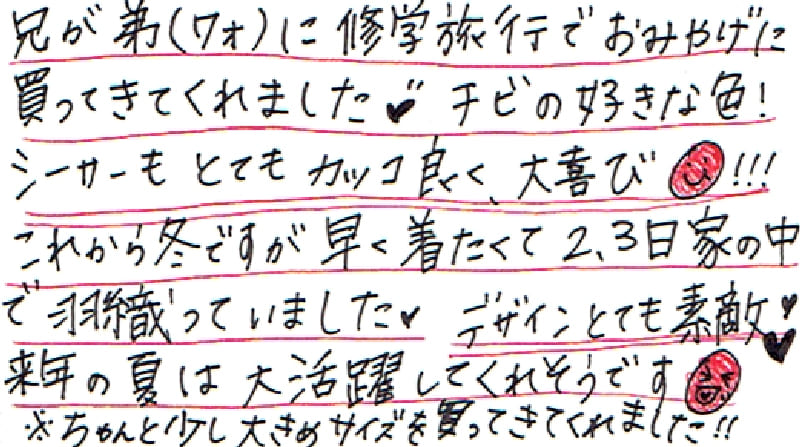 兄が弟(7才)に修学旅行でおみやげに
買ってきてくれました チビの好きな色!
シーサーもとてもカッコ良く、大喜び!!!
これから冬ですが早く着たくて2、3日家の中
で羽織っていました デザインとても素敵
来年の夏は大活躍してくれそうです
※ちゃんと少し大きめサイズを買ってきてくれました!!